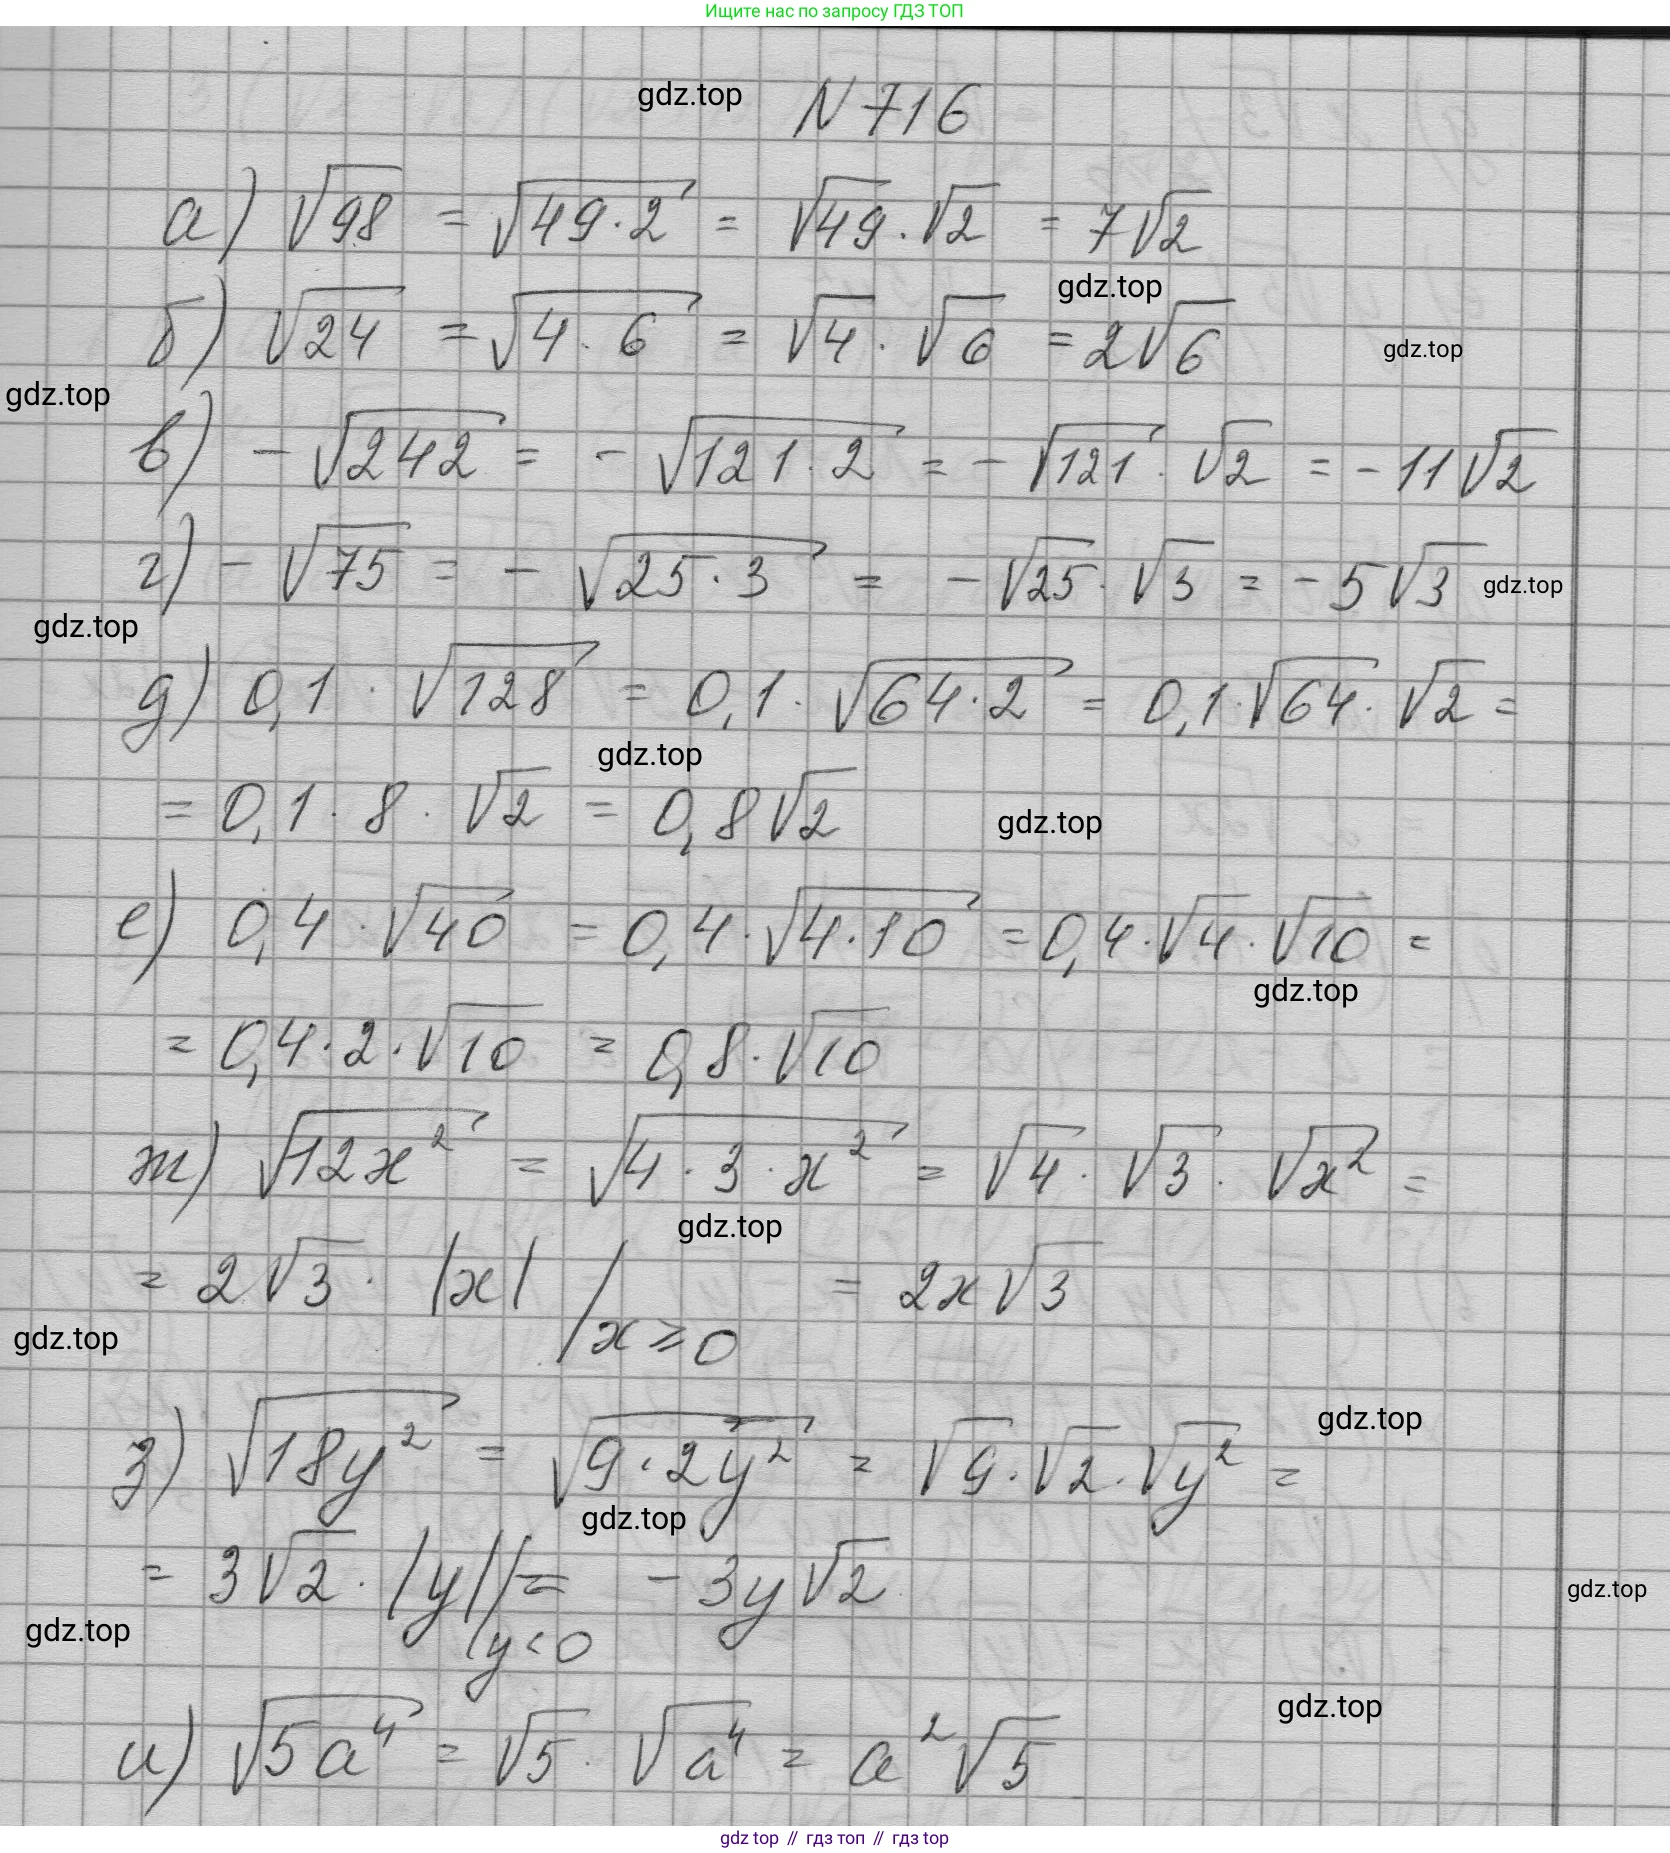 Ищите нас по запросу ГДЗ ТОП
gdz.top
N 716
а) √98 = √49·2 = √49 · √2 = 7√2
gdz.top
б) √24 = √4·6 = √4 · √6 = 2√6
gdz.top
gdz.top
в) -√242 = -√121·2 = -√121 · √2 = -11√2
г) -√75 = -√25·3 = -√25 · √3 = -5√3
gdz.top
gdz.top
д) 0,1 · √128 = 0,1 · √64·2 = 0,1·√64 · √2 =
gdz.top
= 0,1 · 8 · √2 = 0,8√2
gdz.top
е) 0,4 · √40 = 0,4 · √4·10 = 0,4·√4 · √10 =
gdz.top
= 0,4·2·√10 = 0,8·√10
ж) √12x² = √4·3·x² = √4 · √3 · √x² =
gdz.top
= 2√3 · |x| / x ≥ 0 = 2x√3
gdz.top
gdz.top
з) √18y² = √9·2y² = √9·√2·√y² =
gdz.top
= 3√2 · |y| / y<0 = -3y√2
gdz.top
gdz.top
gdz.top
и) √5a⁴ = √5 · √a⁴ = a²√5
gdz top // гдз топ // гдз top